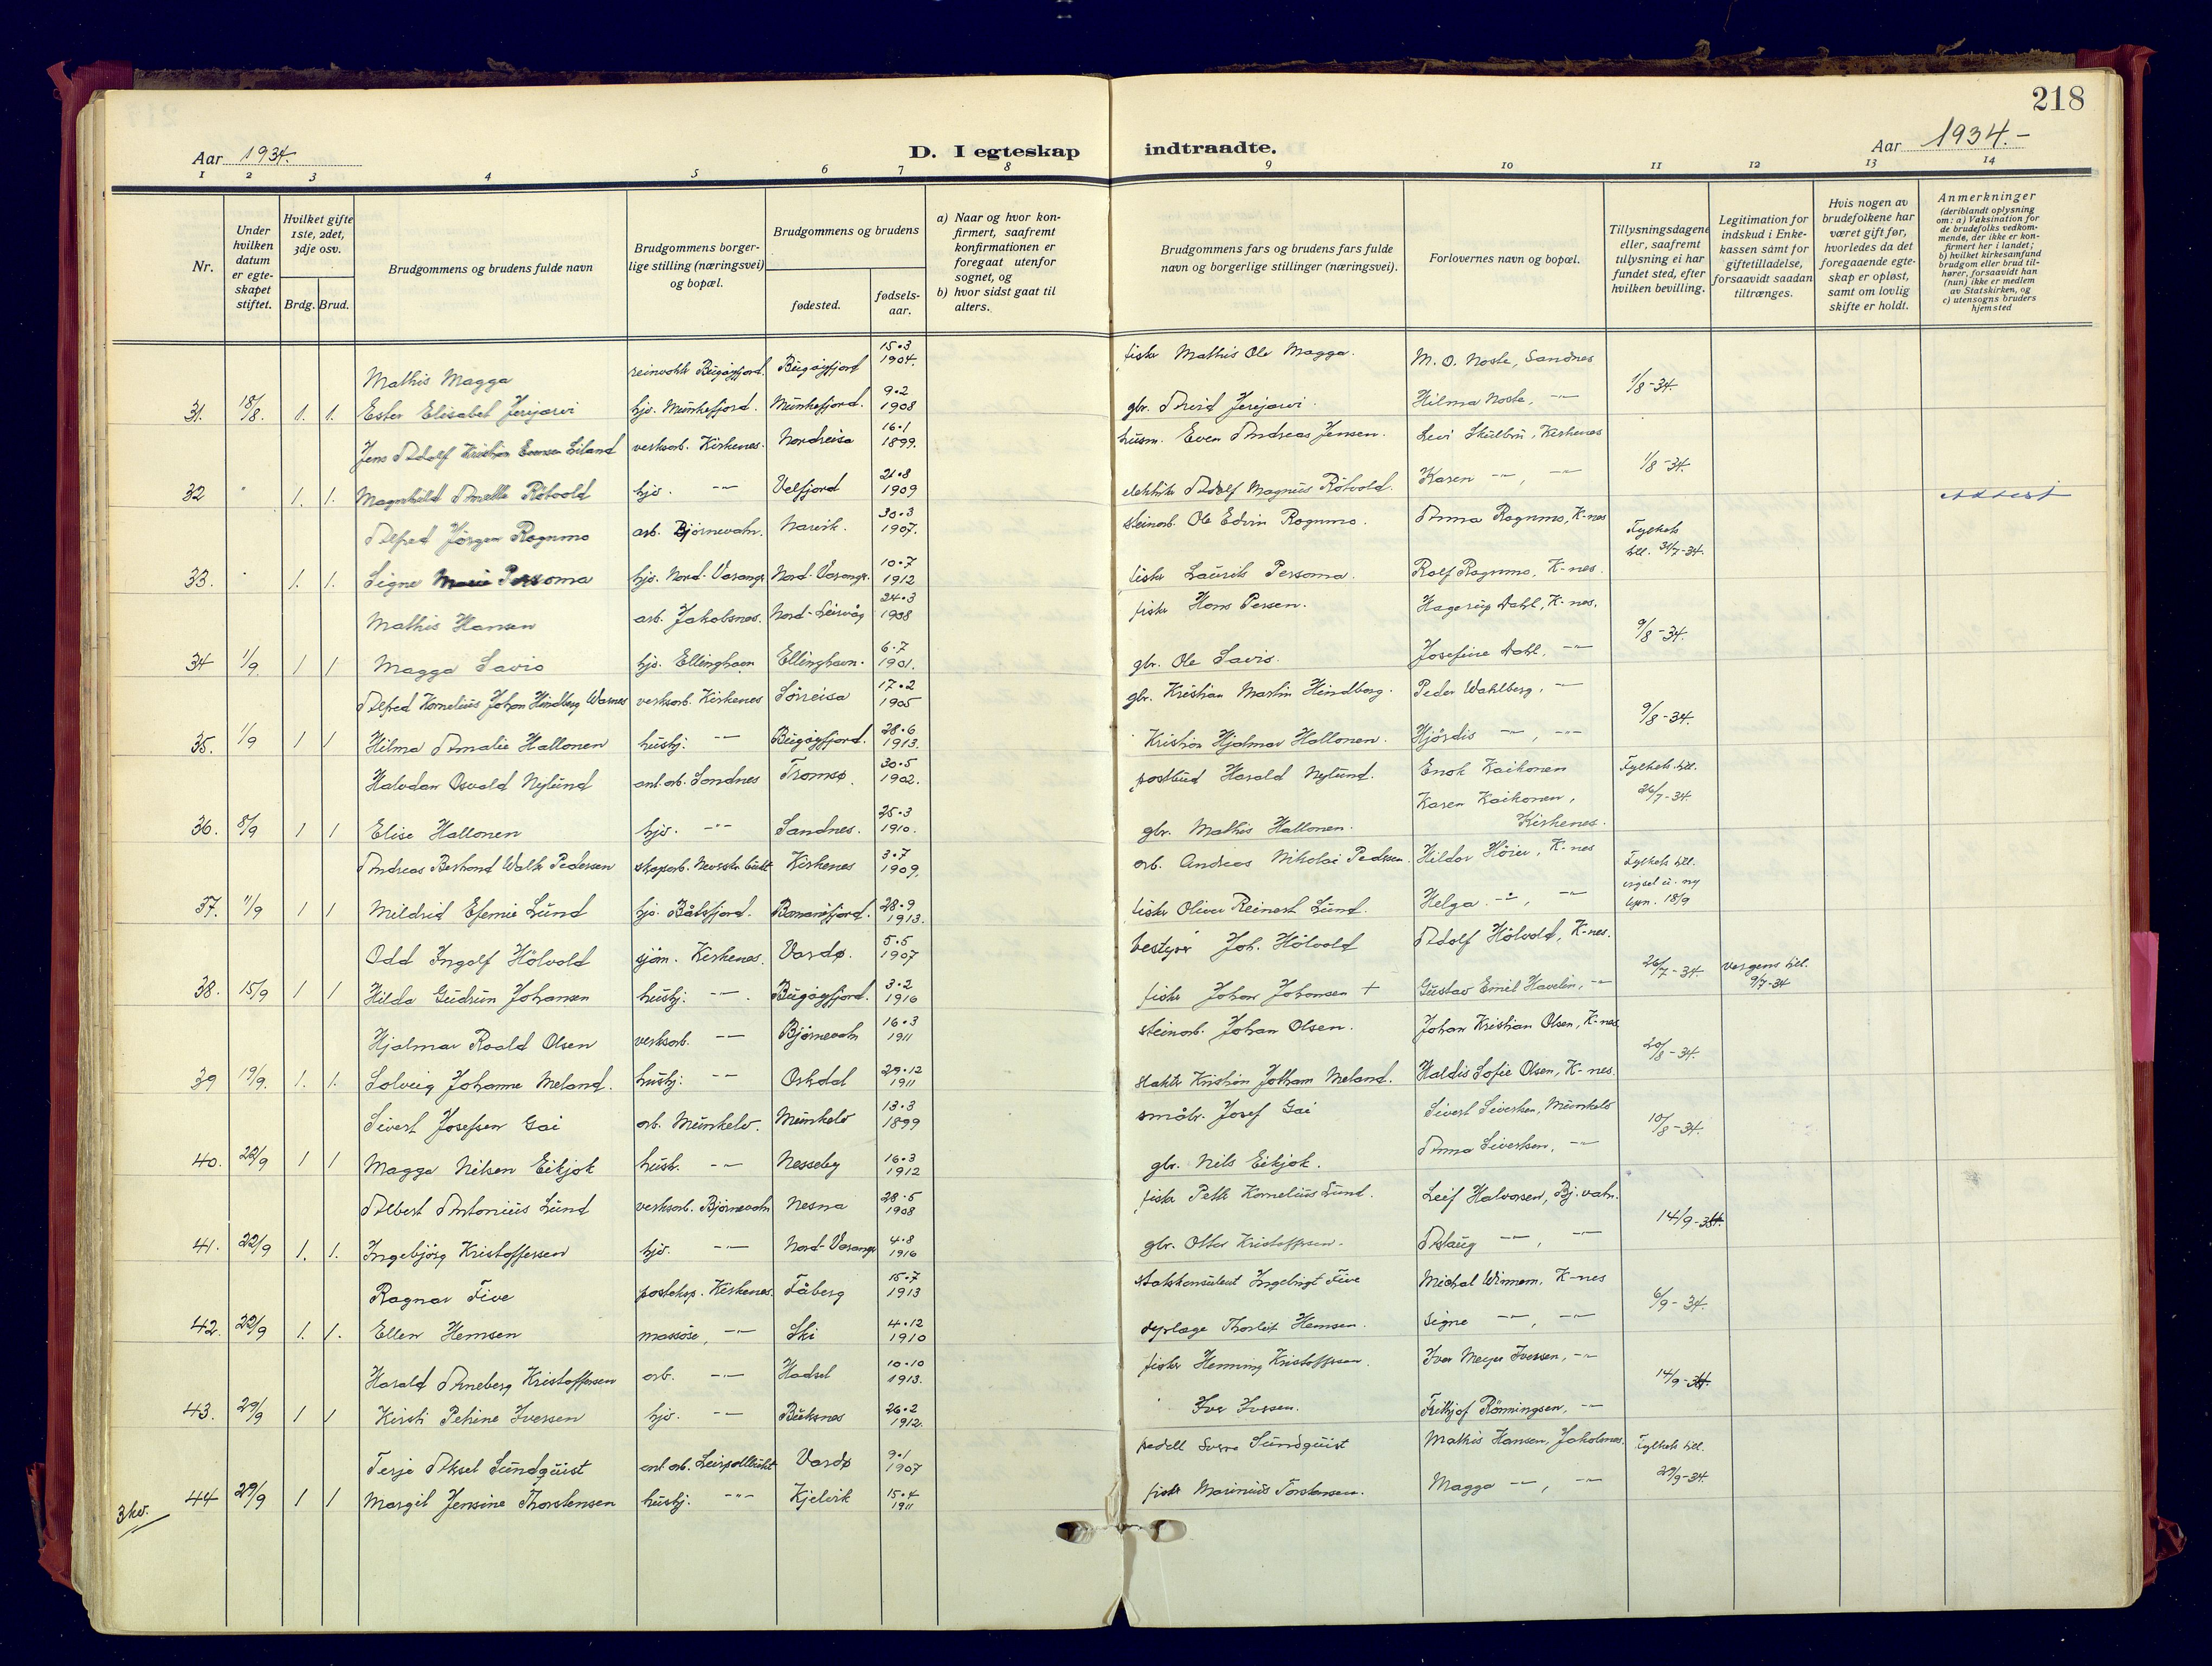 218
Aar 1934.
D. I egteskap indtraadte.
Aar 1934.-
1 2 3 4 5 6 7 8 9 10 11 12 13 14
Nr.
Under hvilken datum er egteskapet stiftet.
Hvilket gifte 1ste, 2det, 3dje osv.
Brdg. Brud.
Brudgommens og brudens fulde navn
Brudgommens borgerlige stilling (næringsvei) og bopæl.
Brudgommens og brudens
fødested.
fødselsaar.
a) Naar og hvor konfirmert, saafremt konfirmationen er foregaat utenfor sognet, og
b) hvor sidst gaat til alters.
Brudgommens fars og brudens fars fulde navn og borgerlige stillinger (næringsvei).
Forlovernes navn og bopæl.
Tillysningsdagene eller, saafremt tillysning ei har fundet sted, efter hvilken bevilling.
Legitimation for indskud i Enkekassen samt for giftetilladelse, forsaavidt saadan tiltrænges.
Hvis nogen av brudefolkene har været gift før, hvorledes da det foregaaende egteskap er opløst, samt om lovlig skifte er holdt.
Anmerkninger
(deriblandt oplysning om: a) Vaksination for de brudefolks vedkommende, der ikke er konfirmert her i landet; b) hvilket kirkesamfund brudgom eller brud tilhører, forsaavidt han (hun) ikke er medlem av Statskirken, og c) utensogns bruders hjemsted
Mathis Magga Bugøyfjord. Bugøyfjord 15.3 1904. fisker Mathis Ole Magga. M. O. Noste, Sandnes
31. 18/8. 1. 1. Ester Elisabet Jerijærvi hjv. Munkefjord. Munkefjord. 9.2 1908 gbr. Arvid Jerijærvi. Hilma Noste, -"- 1/8-34.
Jens Adolf Kristian Evensen Liland verksarb. Kirkenes. Nordreisa 16.1 1899. husm. Even Andreas Jensen. Levi Skulbru, Kirkenes
32 " 1. 1. Magnhild Anette Røtvold hjv. -"- Velfjord 21.8 1909 elektriker Adolf Magnus Røtvold. Karen -"-, -"- 1/8-34.
Alfred Jørgen Rognmo arb. Bjørnevatn. Narvik. 30.3 1907. steinarb. Ole Edvin Rognmo. Anna Rognmo, K-nes Fylkets till. 31/7-34.
33. " 1. 1. Signe Persoma hjv. Nord-Varanger Nord-Varanger. 10.7 1912 fisker Laurits Persoma. Rolf Rognmo, K-nes.
Mathis Hansen arb. Jakobsnes. Nord-Leirvåg 24.3 1908 fisker Hans Persen. Hagerup Dahl, K-nes.
34 1/9. 1 1 Magga Savio hjv. Ellinghavn Ellinghavn. 6.7 1901. gbr. Ole Savio. Josefine Dahl, -"- 9/8-34.
Alfred Kornelius Johan Hindberg Warnes verksarb. Kirkenes Sørreisa 17.2 1905 gbr. Kristian Martin Hindberg. Peder Wahlberg, -"-
35. 1/9 1 1 Hilma Amalie Hallonen hushj. -"- Bugøyfjord. 28.6 1913. Kristian Hjalmar Hallonen. Hjørdis -"-, -"- 9/8-34.
Halvdan Osvald Nylund anl.arb. Sandnes Tromsø. 30.5 1902. postbud Harald Nylund. Enok Kaikonen Fylkets till.
36. 8/9 1 1 Elise Hallonen hjv. -"- Sandnes. 25.3 1910. gbr. Mathis Hallonen. Karen Kaikonen, Kirkenes. 26/7-34.
Andreas Bertrand Walter Pedersen Kirkenes 3.7 1909. arb. Andreas Nikolai Pedersen. Hildor Høier, K-nes Fylkets till.
37. 11/9 1 1 Mildrid Efemie Lund hjv. Båtsfjord. 28.9 1913. fisker Oliver Reinert Lund. Helga -"-, -"- 18/9
Odd Ingolf Hølvold sjøm. Kirkenes. Vardø. 5.5 1907 bestyrer Joh. Hølvold Adolf Hølvold, K-nes.
38. 15/9 1 1 Hilda Gudrun Johansen hushj. -"-. Bugøyfjord. 3.2 1916 fisker Johan Johansen + Gustav Emil Havelin, -"- 26/7-34. vergens till. 9/7-34
Hjalmar Roald Olsen verksarb. -"- Bjørnevatn 16.3 1911 steinarb. Johan Olsen. Johan Kristian Olsen, K-nes.
39 19/9. 1. 1. Solveig Johanne Meland. hushj: -"- Orkdal 29.12 1911 slakter Kristian Jotham Meland. Haldis Sofie Olsen, K-nes. 20/8-34.
Sivert Josefsen Gai arb. Munkelv. Munkelv 13.3 1899 småbr. Josef Gai Sivert Sivertsen, Munkelv
40. 22/9 1 1 Magga Nilsen Eikjok hush. -"- Nesseby 16.3 1912 gbr. Nils Eikjok. Anna Sivertsen, -"- 10/8-34.
Albert Antonius Lund verksarb. Bjørnevatn Nesna 28.5 1908 fisker Petter Kornelius Lund. Leif Halvorsen, Bj.vatn.
41. 22/9 1. 1. Ingebjørg Kristoffersen hjv. -"- Nord-Varanger 4.8 1916 gbr. Otter Kristoffersen. Aslaug -"-, -"- 14/9-34.
Ragnar Five posteksp. Kirkenes. Fåberg 15.7 1913 statskonsulent Ingebrigt Five Michal Winnem, K-nes
42. 22/9 1. 1. Ellen Hemsen massøse, -"- Ski 4.12 1910 Thorleif Hemsen. Signe -"-, -"- 6/9-34.
Harald Arneberg Kristoffersen arb. -"- Hadsel 10.10 1913. fisker Henning Kristoffersen. Ivar Meyer Iversen, -"-
43. 29/9 1 1 Kirsti Petrine Iversen hjv. -"- Buksnes 26.2 1912. " Ivar Iversen. Fritjof Rønningsen, -"- 14/9-34.
Terje Aksel Sundquist anl.arb. Leirpollbukt Vardø 9.1 1907 pedell Sverre Sundquist Mathis Hansen, Jakobsnes. Fylkets till.
44 29/9 1 1 Margit Jensine Thorstensen hushj. -"- Kjelvik 15.4 1911 fisker Marinius Torstensen. Magga -"-, -"- 29/9-34.
3 kv.